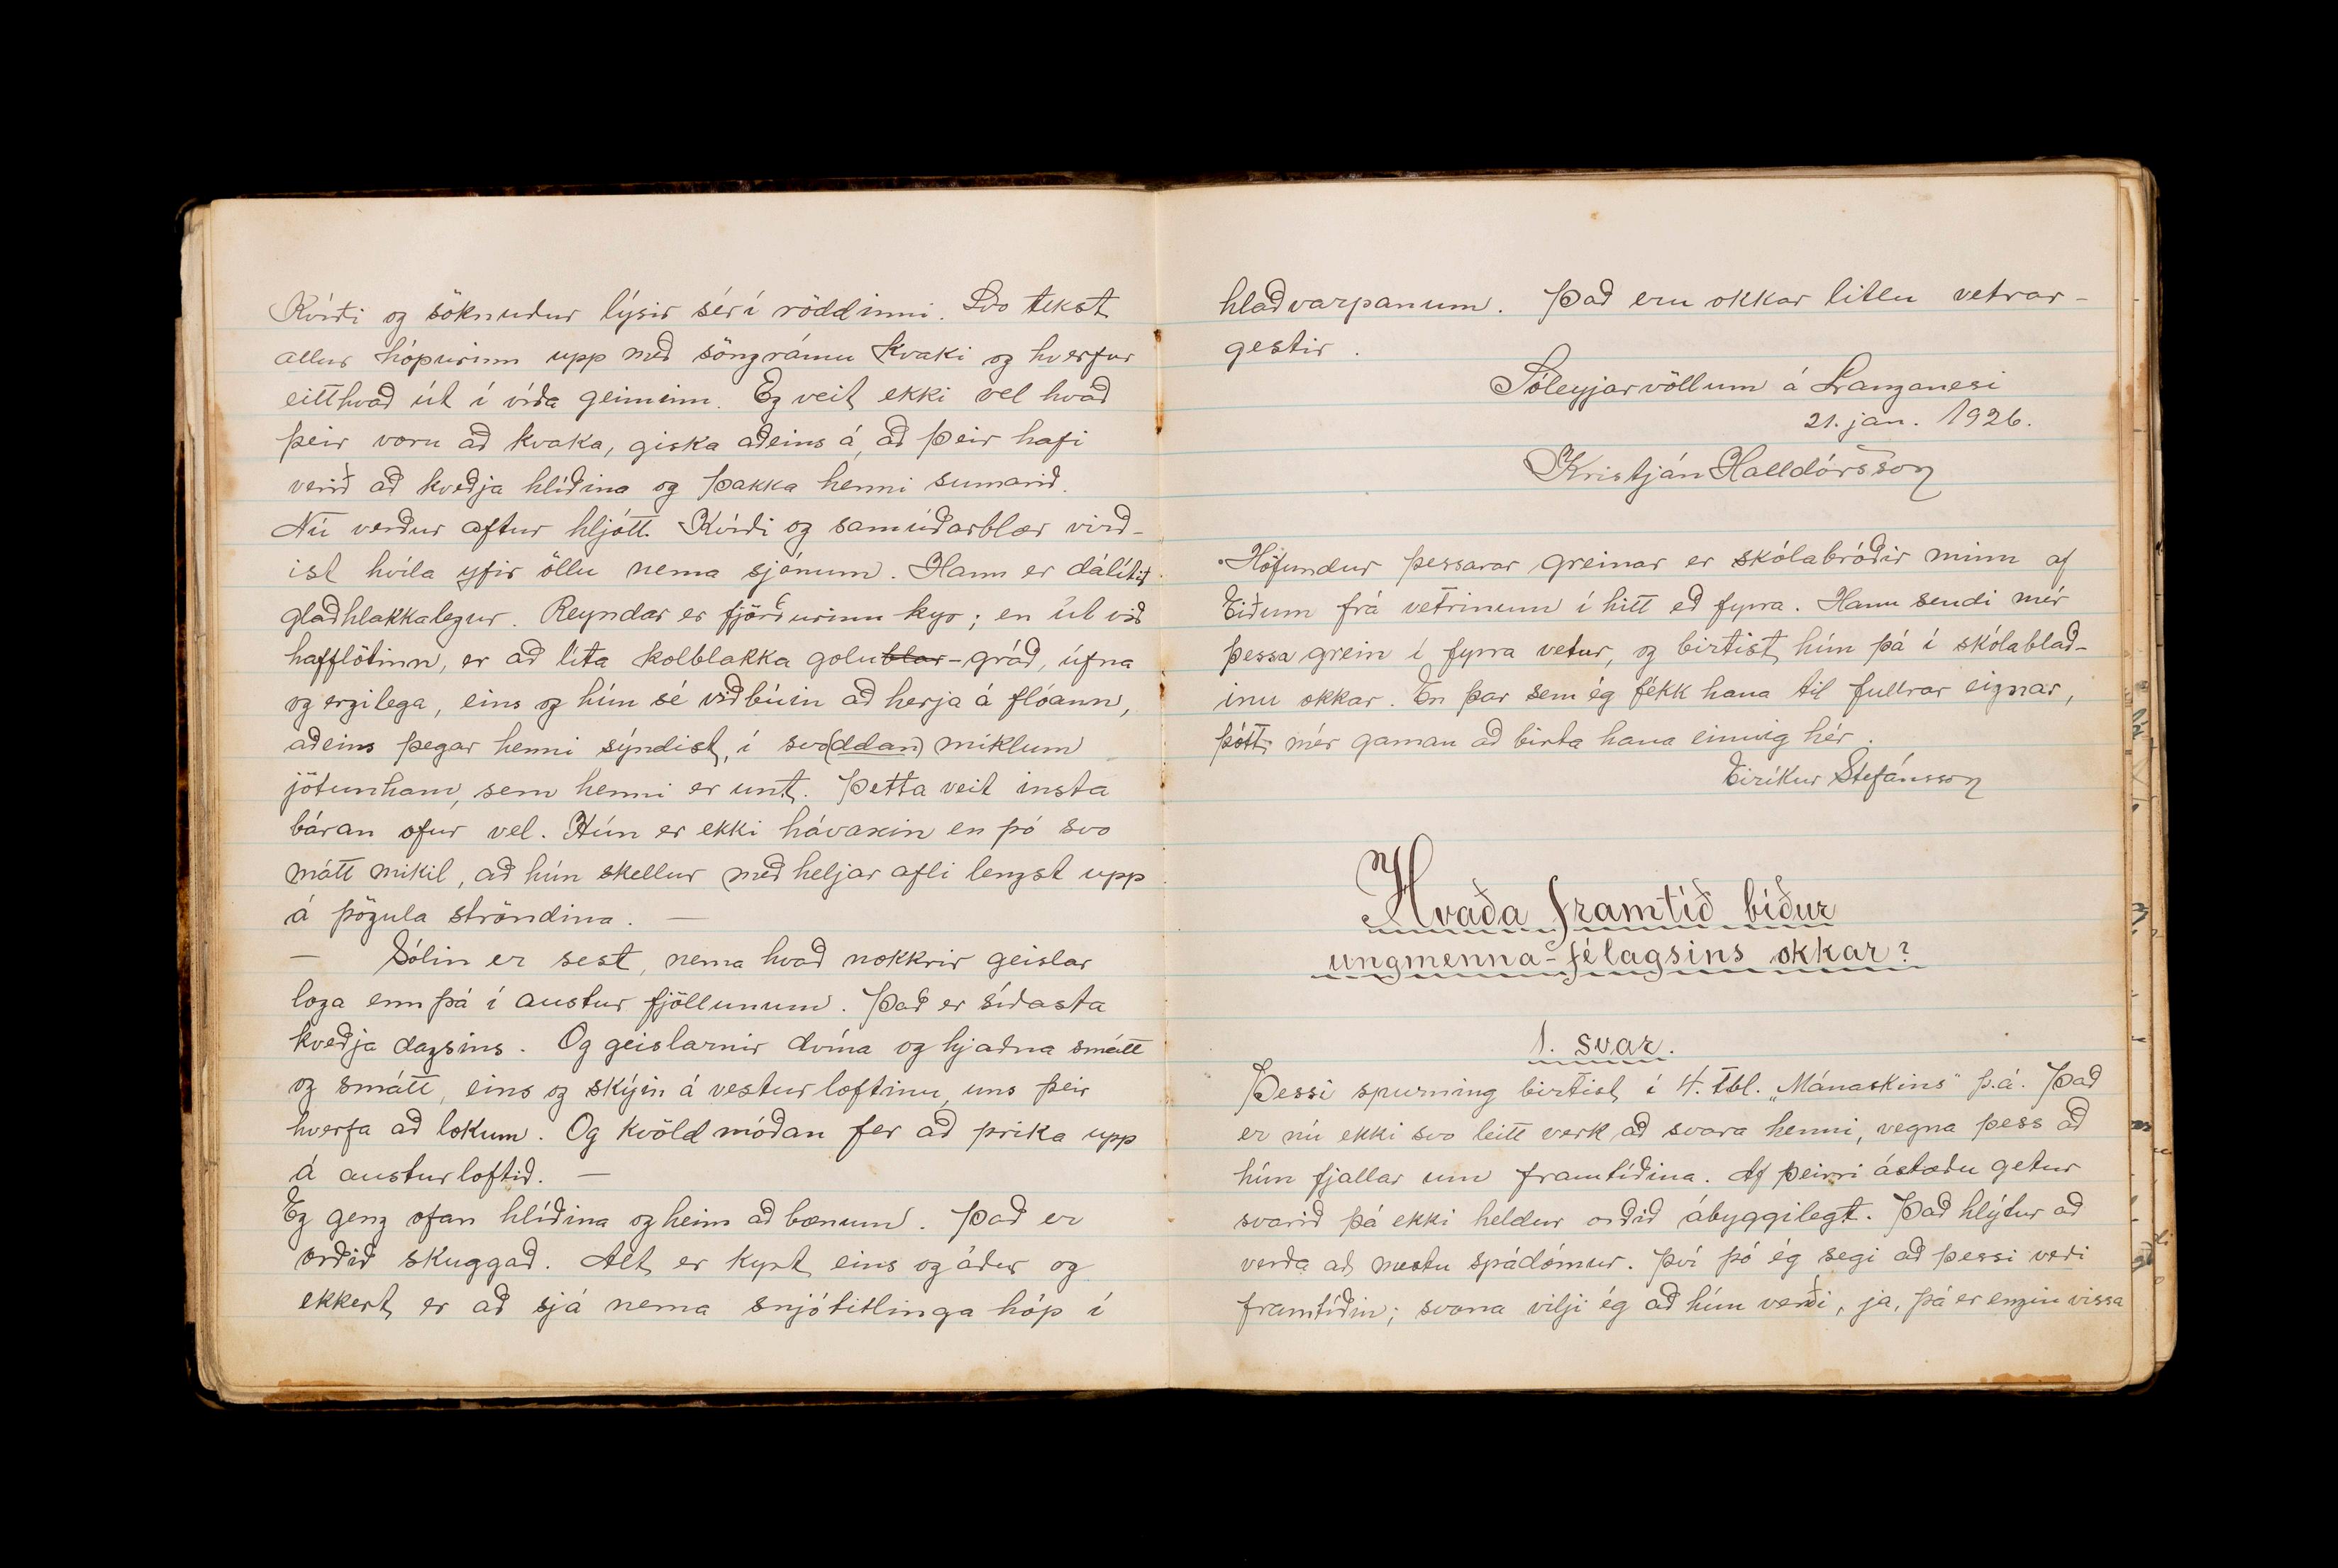 Kvíði og söknuður lýsir sér í röddinni. Svo tekst
allur hópurinn upp með söngrámu kvaki og hverfur
eitthvað út í víða geiminn. Eg veit ekki vel hvað
þeir voru að kvaka, giska aðeins á, að þeir hafi
verið að kveðja hlíðina og þakka henni sumarið.
Nú verður aftur hljótt. Kvíði og samúðarblær virð-
ist hvíla yfir öllu nema sjónum. Hann er dálítið
glaðhlakkalegur. Reyndar er fjörðurinn kyr; en út við
hafflötinn, er að líta kolblakka golublar-gráð, úfna
og ergilega, eins og hún sé viðbúin að herja á flóann,
aðeins þegar henni sýndist, í svo(ddan) miklum
jötunham, sem henni er unt. Þetta veit insta
báran ofur vel. Hún er ekki hávaxin en þó svo
mátt mikil, að hún skellur með heljar afli lengst upp
á þögula ströndina. —
— Sólin er sest, nema hvað nokkrir geislar
loga enn þá í austur fjöllunum. Það er síðasta
kveðja dagsins. Og geislarnir dvína og hjaðna smátt
og smátt, eins og skýin á vestur loftinu, uns þeir
hverfa að lokum. Og kvöld móðan fer að prika upp
á austurloftið. —
Eg geng ofan hlíðina og heim að bænum. Það er
orðið skuggað. Alt er kyrt eins og áður og
ekkert er að sjá nema snjótitlinga hóp í
hlaðvarpanum. Það eru okkar litlu vetrar-
gestir.
Sóleyjarvöllum á Langanesi
21. jan. 1926.
Kristján Halldórsson
Höfundur þessarar greinar er skólabróðir minn af
Eiðum frá vetrinum í hitt eð fyrra. Hann sendi mér
þessa grein í fyrra vetur, og birtist hún þá í skólablað-
inu okkar. En þar sem ég fékk hana til fullrar eignar,
þótti mér gaman að birta hana einnig hér.
Eiríkur Stefánsson
Hvaða framtíð bíður
ungmenna-félagsins okkar?
1. svar.
Þessi spurning birtist í 4. tbl. „Mánaskins" þ.á. Það
er nú ekki svo leitt verk að svara henni, vegna þess að
hún fjallar um framtíðina. Af þeirri ástæðu getur
svarið þá ekki heldur orðið ábyggilegt. Það hlýtur að
verða að mestu spádómur. Því þó ég segi að þessi verði
framtíðin; svona vilji ég að hún verði, ja, þá er engin vissa